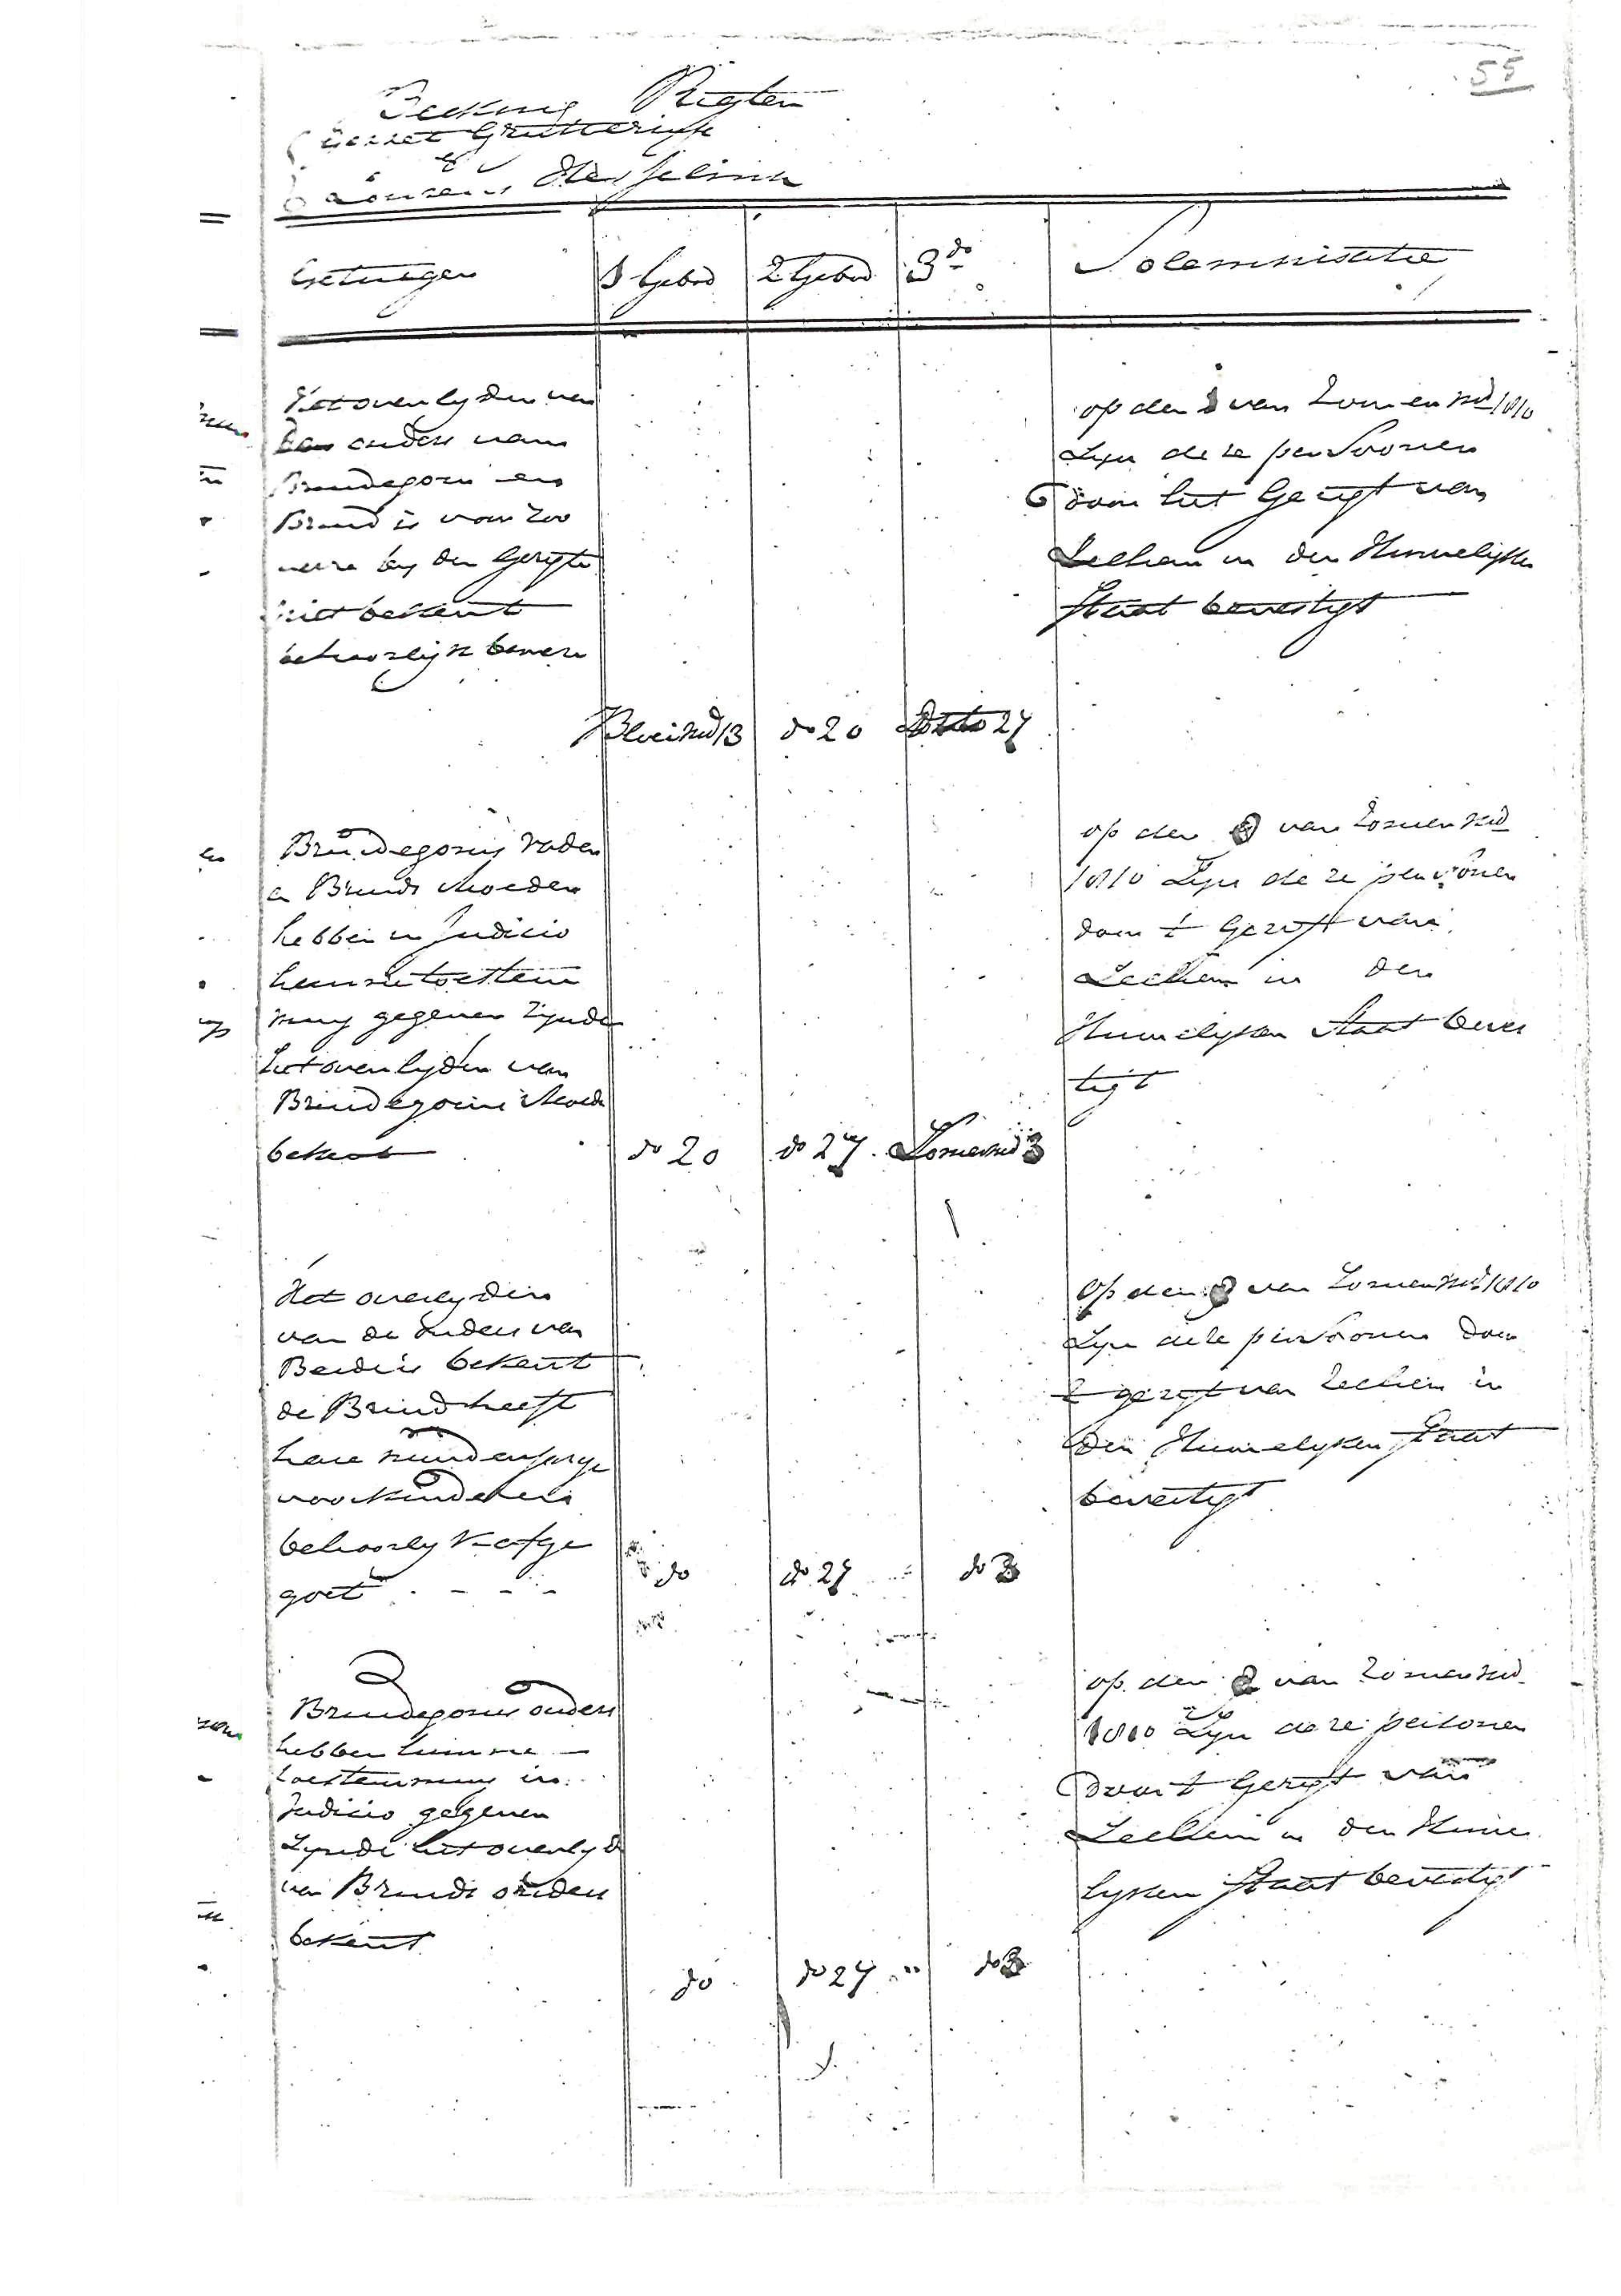 55
Becking Rigter
Gerret Grutterink
&
Lourens Hesselink
Getuigen 1 Gebod 2 Gebod 3 do Solemnisatie
Het overlyden van
den ouders van
Bruidegom en
Bruid is voor zoo
verre by den Gerigte
niet bekent
behoorlijk bewese
Bloeimd 13 do 20 Ditto 27
op den van Zomermd 1810
Zyn deze persoonen
door het Gerigt van
Lochem in den Huwelijken
Staat bevestigt
Bruidegoms Vader
en Bruids Moeder
hebben in Judicio
hunne toestem
ming gegeven zynde
het overlyden van
Bruidegoms Moeder
bekent
do 20 do 27 Zomermd 3
op den van Zomermd
1810 Zyn deze persoonen
door t Gerigt van
Lochem in den
Huwelyken Staat beves
tigt
Het overlyden
van de Ouders van
Beide is bekent
de Bruid heeft
hare minderjarige
voorkinderen
behoorlyk afge
goet - - - -
do do 27 do 3
Op den van Zomermd 1810
Zyn deze persoonen door
t gerigt van Lochem in
den Huwelyken Staat
bevestigt
Bruidegoms ouders
hebben hunne
toestemming in
Judicio gegeven
Zynde het overlyd
van Bruids ouders
bekent
do do 27 do 3
op den van Zomermd
1810 Zyn deze personen
door t Gerigt van
Lochem in den Huwe
lyken Staat bevestigt